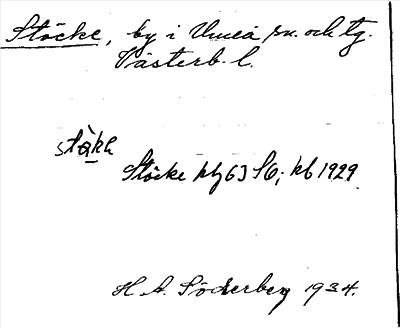 Stöcke, by i Umeå sn. och tg.
Västerb. l.
Stöcke hfl 63 SO; kb 1929
H. A. Söderberg 1934.